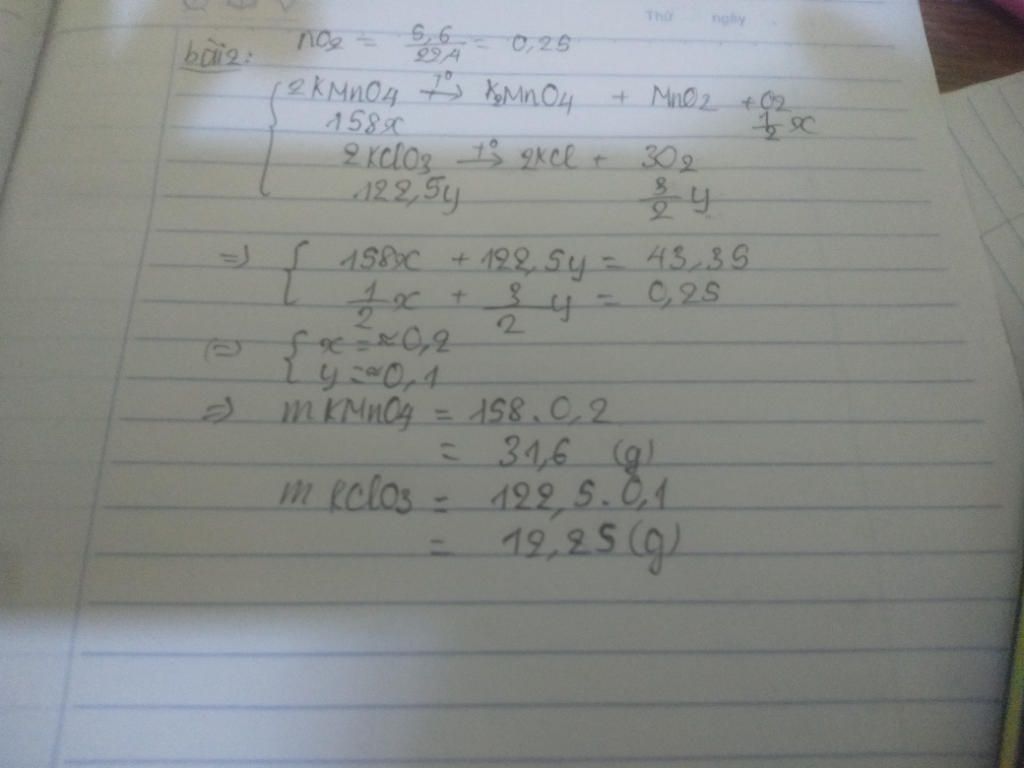 Thứ ngày
bài 2: nO2 = 5,6/22,4 = 0,25
2KMnO4 t°→ K2MnO4 + MnO2 + O2
158x 1/2 x
2KClO3 t°→ 2KCl + 3O2
122,5y 3/2 y
=> { 158x + 122,5y = 43,35
1/2 x + 3/2 y = 0,25
(=) { x = ≈ 0,2
y = ≈ 0,1
=> mKMnO4 = 158.0,2
= 31,6 (g)
mKClO3 = 122,5.0,1
= 12,25 (g)